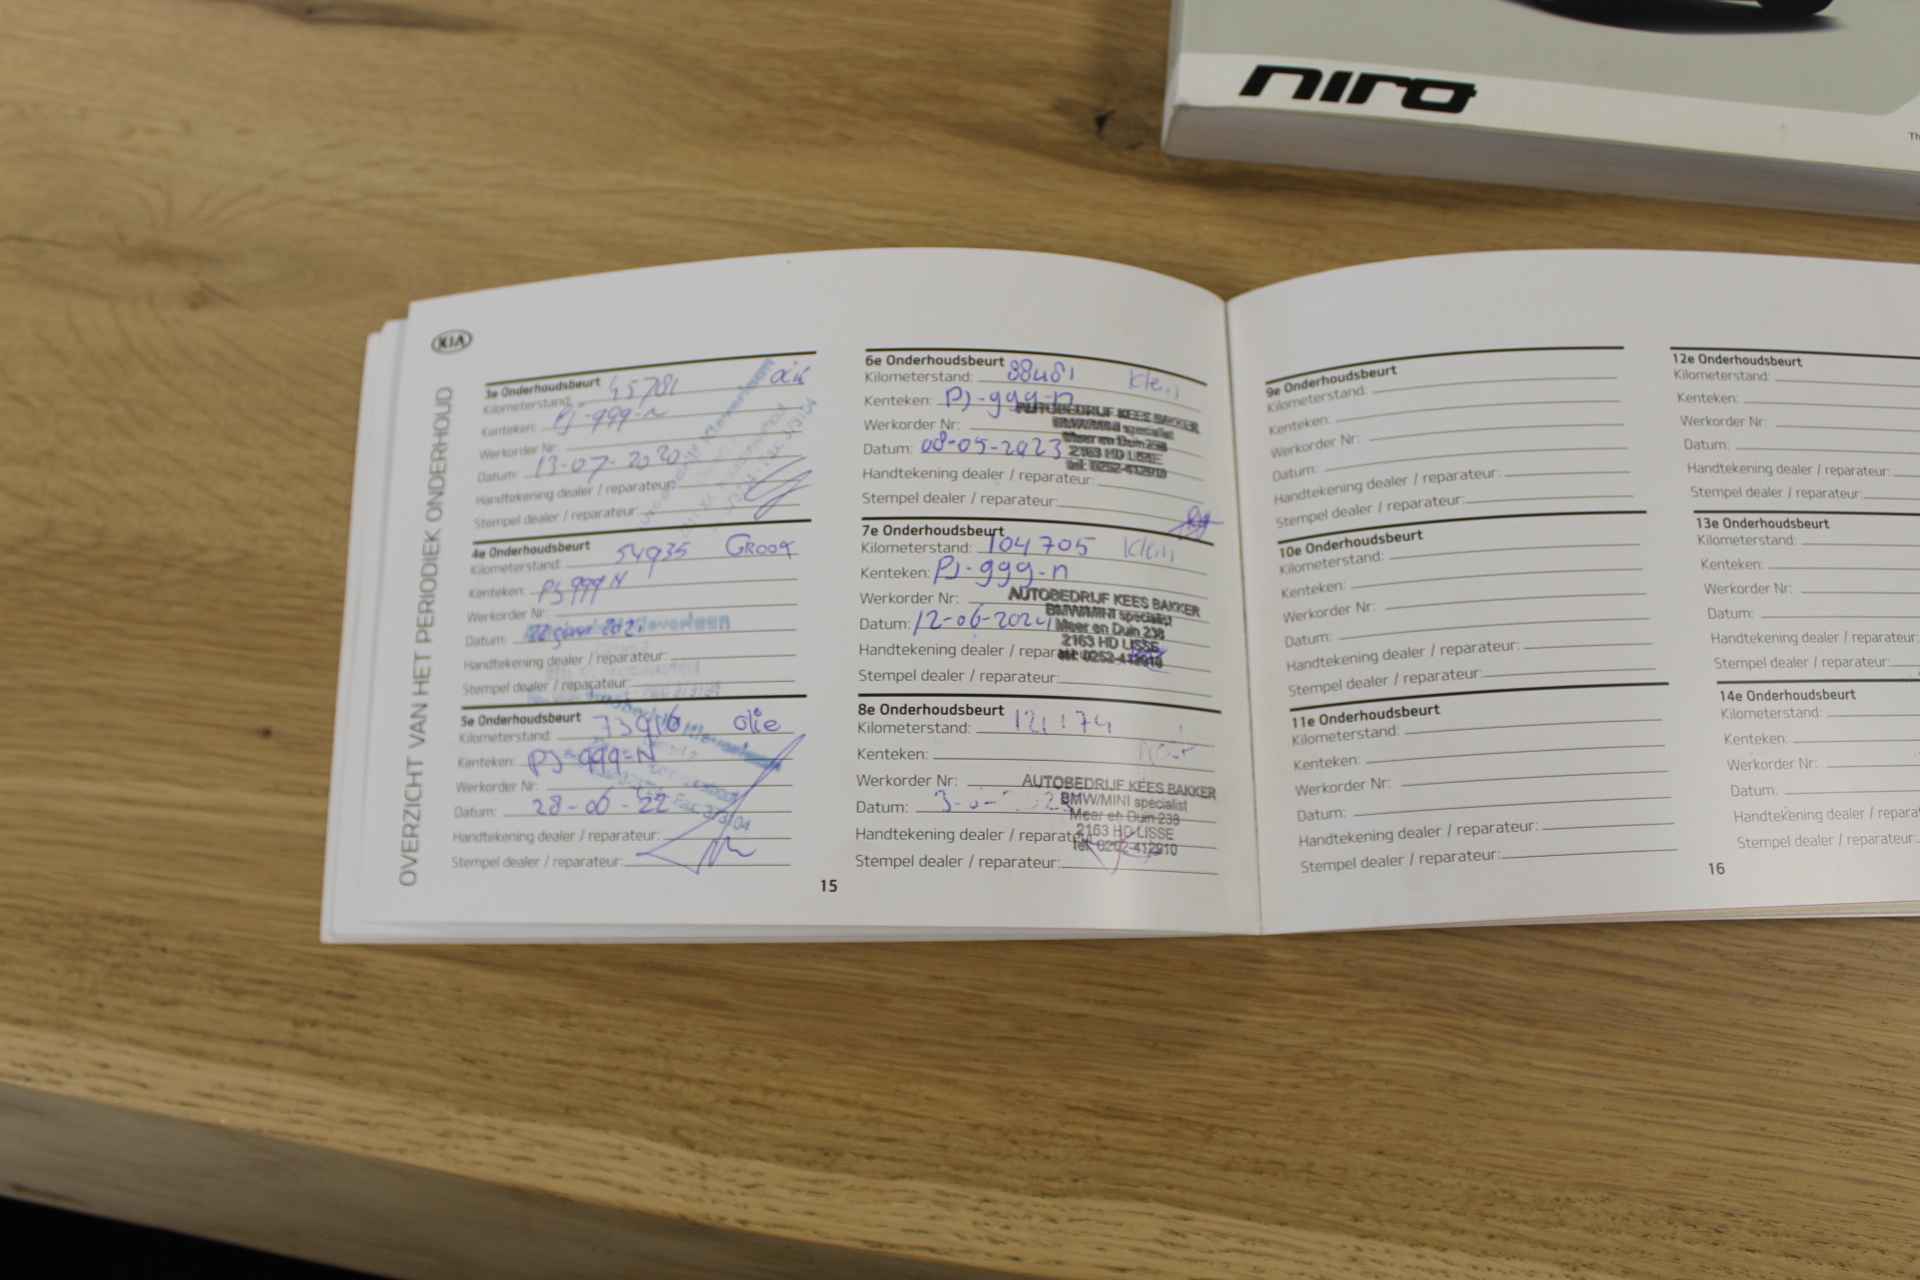 niro
Th
KIA
OVERZICHT VAN HET PERIODIEK ONDERHOUD
3e Onderhoudsbeurt
Kilometerstand: 45781 olie
Kenteken: PJ-999-N
Werkorder Nr:
Datum: 13-07-2020
Handtekening dealer / reparateur:
Stempel dealer / reparateur:
4e Onderhoudsbeurt
Kilometerstand: 54935 Groot
Kenteken: PJ 999 N
Werkorder Nr:
Datum: 2021
Handtekening dealer / reparateur:
Stempel dealer / reparateur:
5e Onderhoudsbeurt
Kilometerstand: 73916 olie
Kenteken: PJ-999-N
Werkorder Nr:
Datum: 28-06-22
Handtekening dealer / reparateur:
Stempel dealer / reparateur:
6e Onderhoudsbeurt
Kilometerstand: 88481 Klein
Kenteken: PJ-999-n
Werkorder Nr:
Datum: 08-05-2023
Handtekening dealer / reparateur:
Stempel dealer / reparateur:
AUTOBEDRIJF KEES BAKKER
BMW/MINI specialist
Meer en Duin 238
2163 HD LISSE
tel: 0252-412910
7e Onderhoudsbeurt
Kilometerstand: 104705 Klein
Kenteken: PJ-999-n
Werkorder Nr:
Datum: 12-06-2024
Handtekening dealer / repar
Stempel dealer / reparateur:
AUTOBEDRIJF KEES BAKKER
BMW/MINI specialist
Meer en Duin 238
2163 HD LISSE
tel: 0252-412910
8e Onderhoudsbeurt
Kilometerstand: 121174
Kenteken:
Werkorder Nr:
Datum:
Handtekening dealer / reparate
Stempel dealer / reparateur:
AUTOBEDRIJF KEES BAKKER
BMW/MINI specialist
Meer en Duin 238
2163 HD LISSE
tel: 0252-412910
15
9e Onderhoudsbeurt
Kilometerstand:
Kenteken:
Werkorder Nr:
Datum:
Handtekening dealer / reparateur:
Stempel dealer / reparateur:
10e Onderhoudsbeurt
Kilometerstand:
Kenteken:
Werkorder Nr:
Datum:
Handtekening dealer / reparateur:
Stempel dealer / reparateur:
11e Onderhoudsbeurt
Kilometerstand:
Kenteken:
Werkorder Nr:
Datum:
Handtekening dealer / reparateur:
Stempel dealer / reparateur:
12e Onderhoudsbeurt
Kilometerstand:
Kenteken:
Werkorder Nr:
Datum:
Handtekening dealer / reparateur:
Stempel dealer / reparateur:
13e Onderhoudsbeurt
Kilometerstand:
Kenteken:
Werkorder Nr:
Datum:
Handtekening dealer / reparateur:
Stempel dealer / reparateur:
14e Onderhoudsbeurt
Kilometerstand:
Kenteken:
Werkorder Nr:
Datum:
Handtekening dealer / reparat
Stempel dealer / reparateur:
16